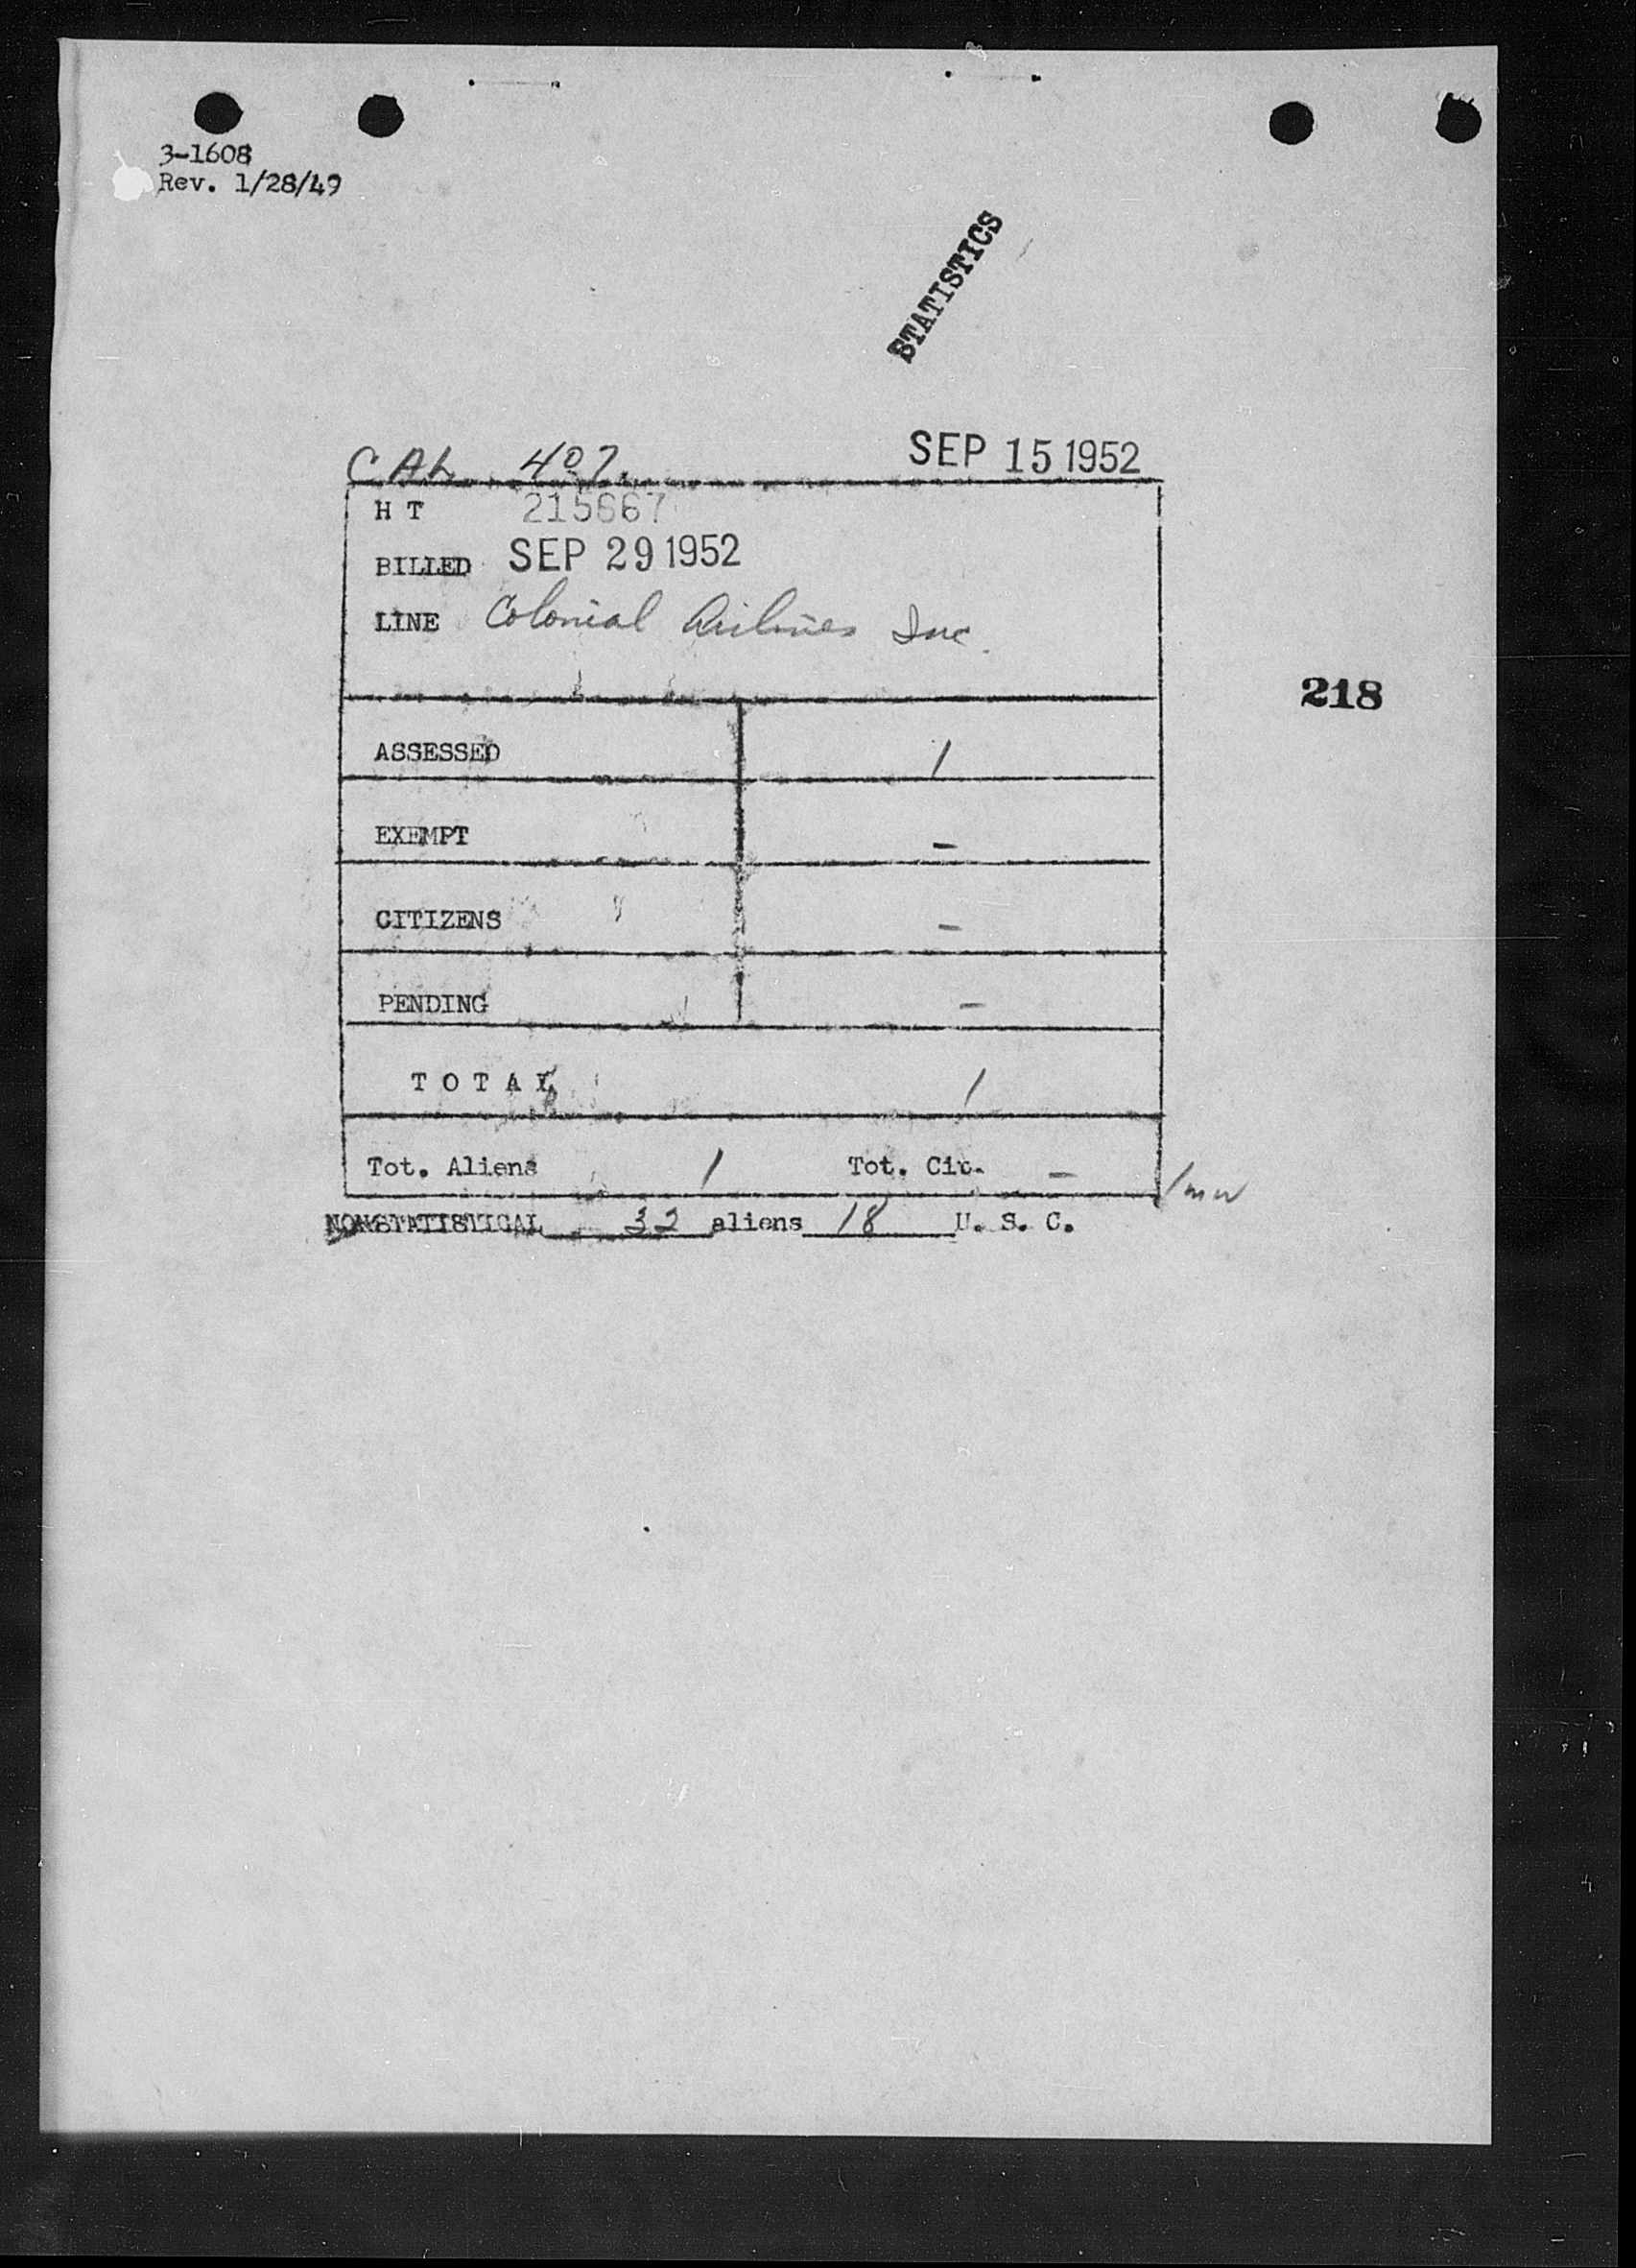 3-1608
Rev. 1/28/49
STATISTICS
CAL 407. SEP 15 1952
H T 215667
BILLED SEP 29 1952
LINE Colonial Airlines Inc.
218
ASSESSED 1
EXEMPT –
CITIZENS –
PENDING –
T O T A L 1
Tot. Aliens 1 Tot. Cit. –
NONSTATISTICAL 32 aliens 18 U. S. C.